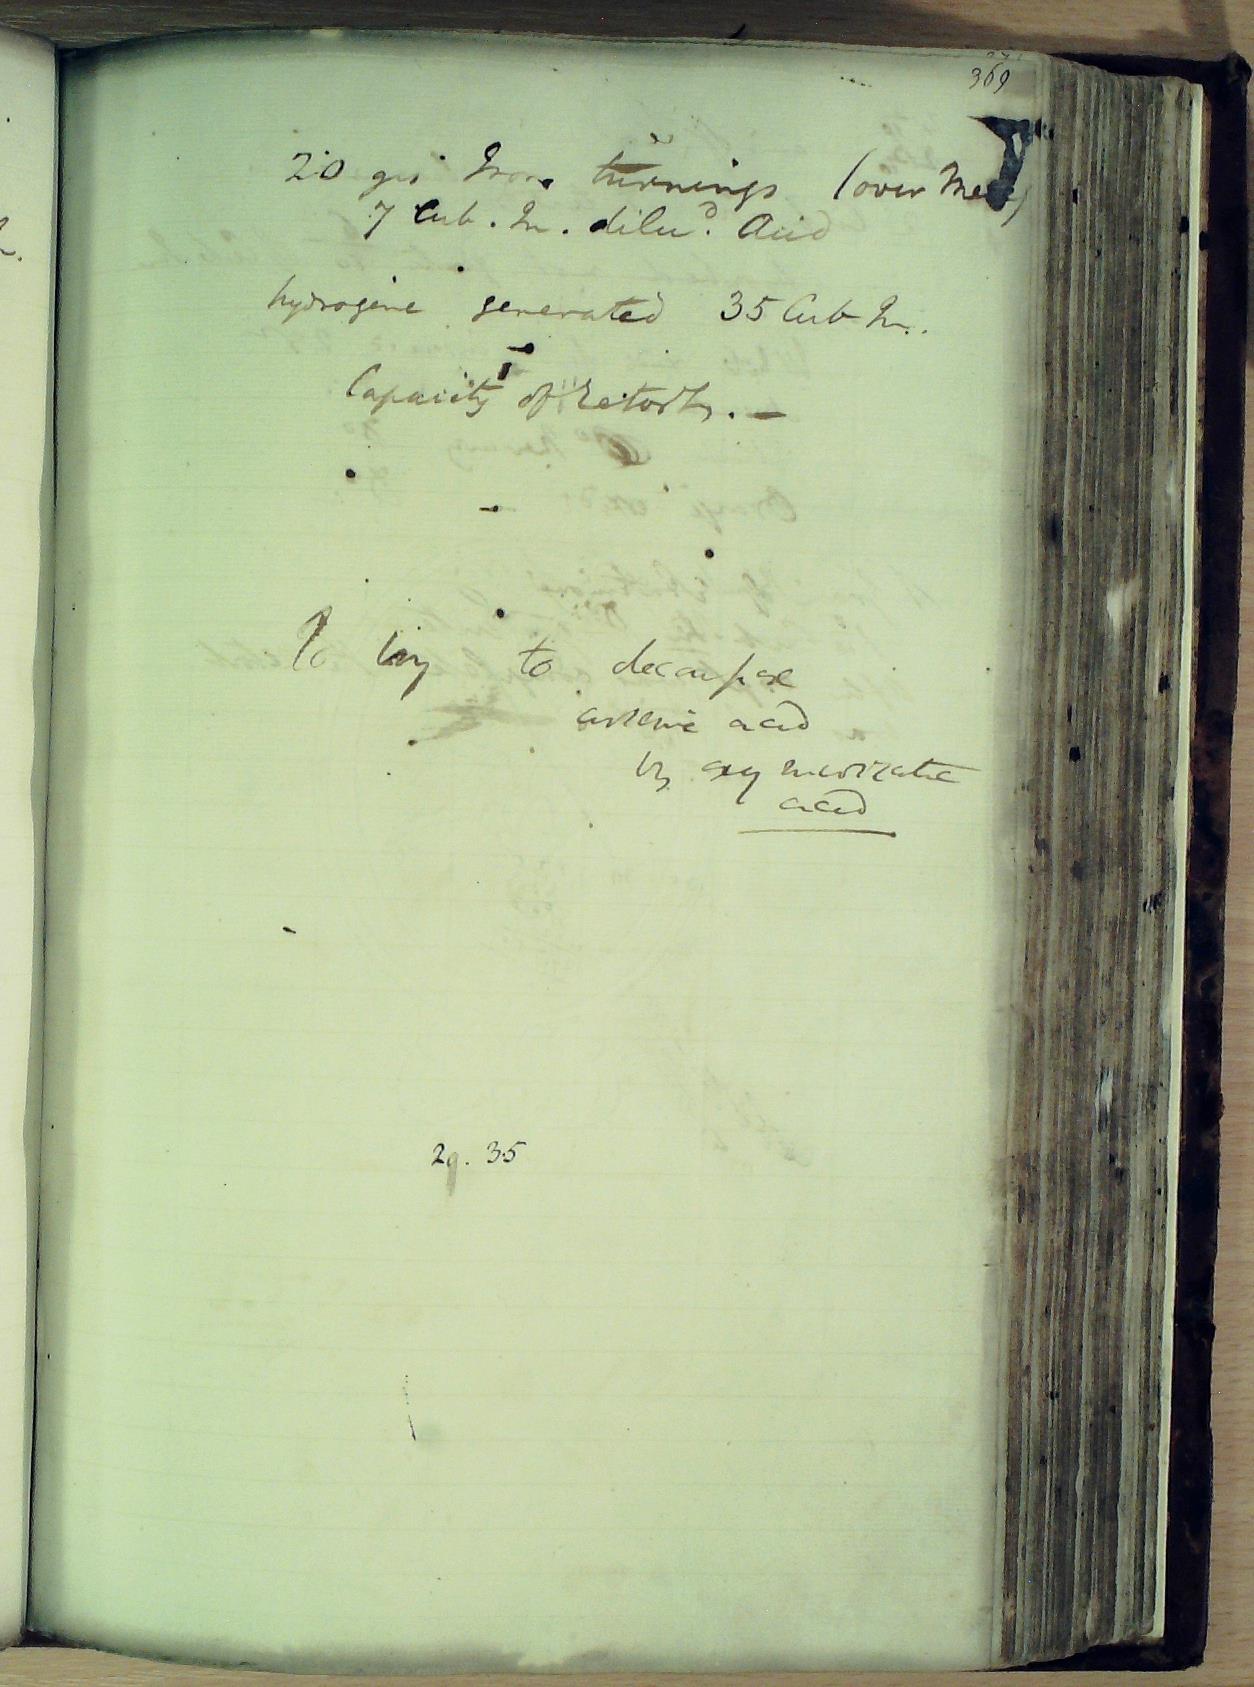 369
20 grs Iron turnings (over Merc)
7 Cub. In. dilud. Acid
hydrogene generated 35 Cub In.
Capacity of retorts. —
To try to decompose
arsenic acid
by oxymuriatic
acid
29. 35